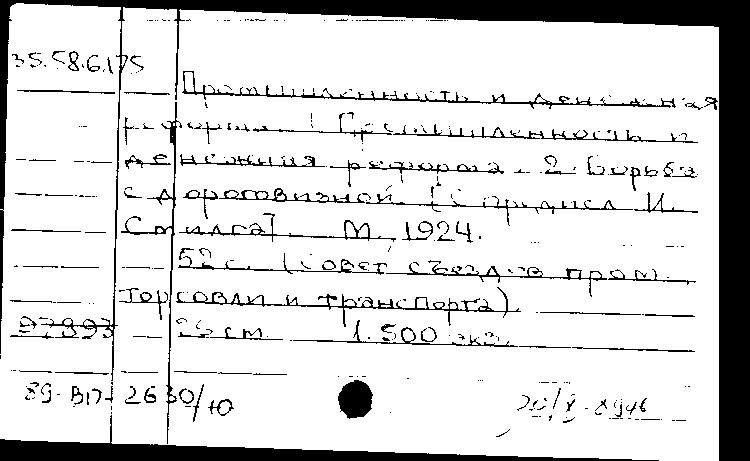 35.58.6.175
Промышленность и денежная
реформа. 1. Промышленность и
денежная реформа. 2. Борьба
с дороговизной. [С предисл. И.
Смилга]. М., 1924.
52 с. (Совет съездов пром.,
торговли и транспорта).
97393 см 1.500 экз.
89-ВП- 2630/10